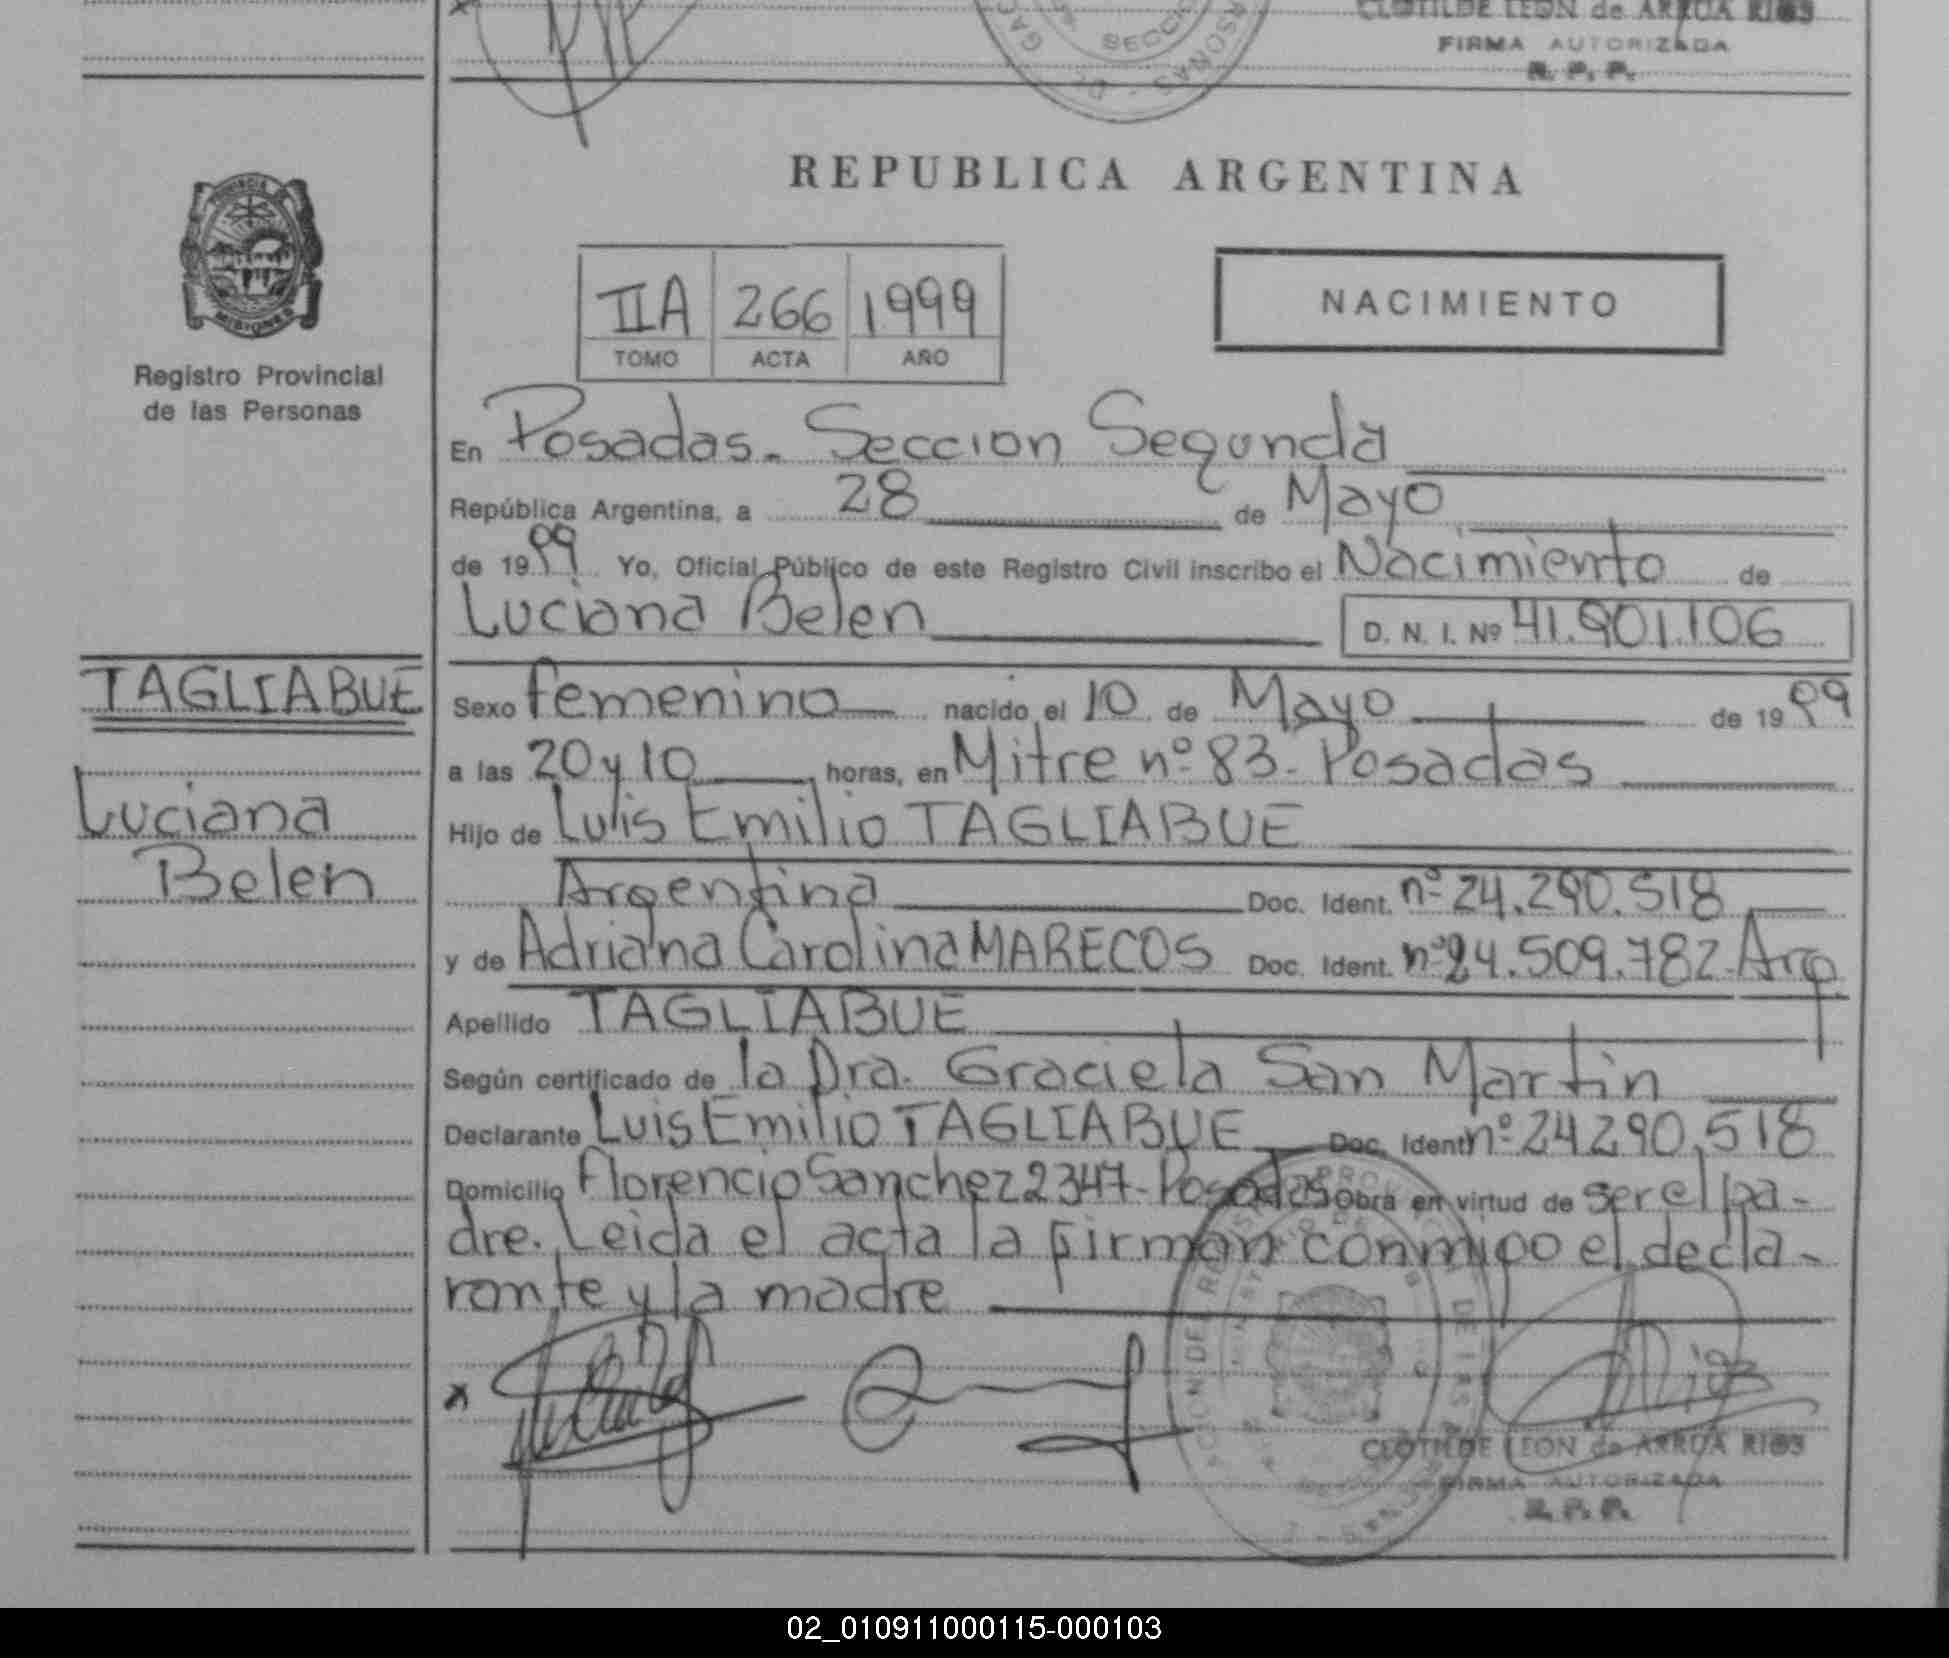 CLOTILDE LEON de ARRUA RIOS
FIRMA AUTORIZADA
R. P. P.
REPUBLICA ARGENTINA
IIA 266 1999
TOMO ACTA AÑO
NACIMIENTO
MISIONES
Registro Provincial
de las Personas
En Posadas. Seccion Segunda
República Argentina, a 28 de Mayo
de 1999 Yo, Oficial Público de este Registro Civil inscribo el Nacimiento de
Luciana Belen D. N. I. Nº 41.901.106
TAGLIABUE
Luciana
Belen
Sexo femenino nacido el 10 de Mayo de 1999
a las 20 y 10 horas, en Mitre nº 83. Posadas
Hijo de Luis Emilio TAGLIABUE
Argentina Doc. Ident. nº 24.290.518
y de Adriana Carolina MARECOS Doc. Ident. nº 24.509.782. Arg.
Apellido TAGLIABUE
Según certificado de la Dra. Graciela San Martin
Declarante Luis Emilio TAGLIABUE Doc. Ident. nº 24290.518
Domicilio Florencio Sanchez 2347- Posadas Obra en virtud de ser el pa-
dre. Leida el acta la firman conmigo el decla-
rante y la madre
CLOTILDE LEON de ARRUA RIOS
FIRMA AUTORIZADA
R. P. P.
02_010911000115-000103